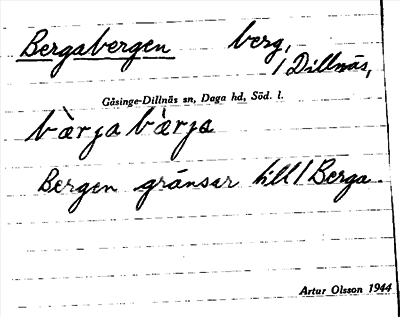 Bergabergen berg,
/ Dillnäs,
Gåsinge-Dillnäs sn, Daga hd, Söd. l.
bàrja bàrja
Bergen gränsar till / Berga.
Artur Olsson 1944